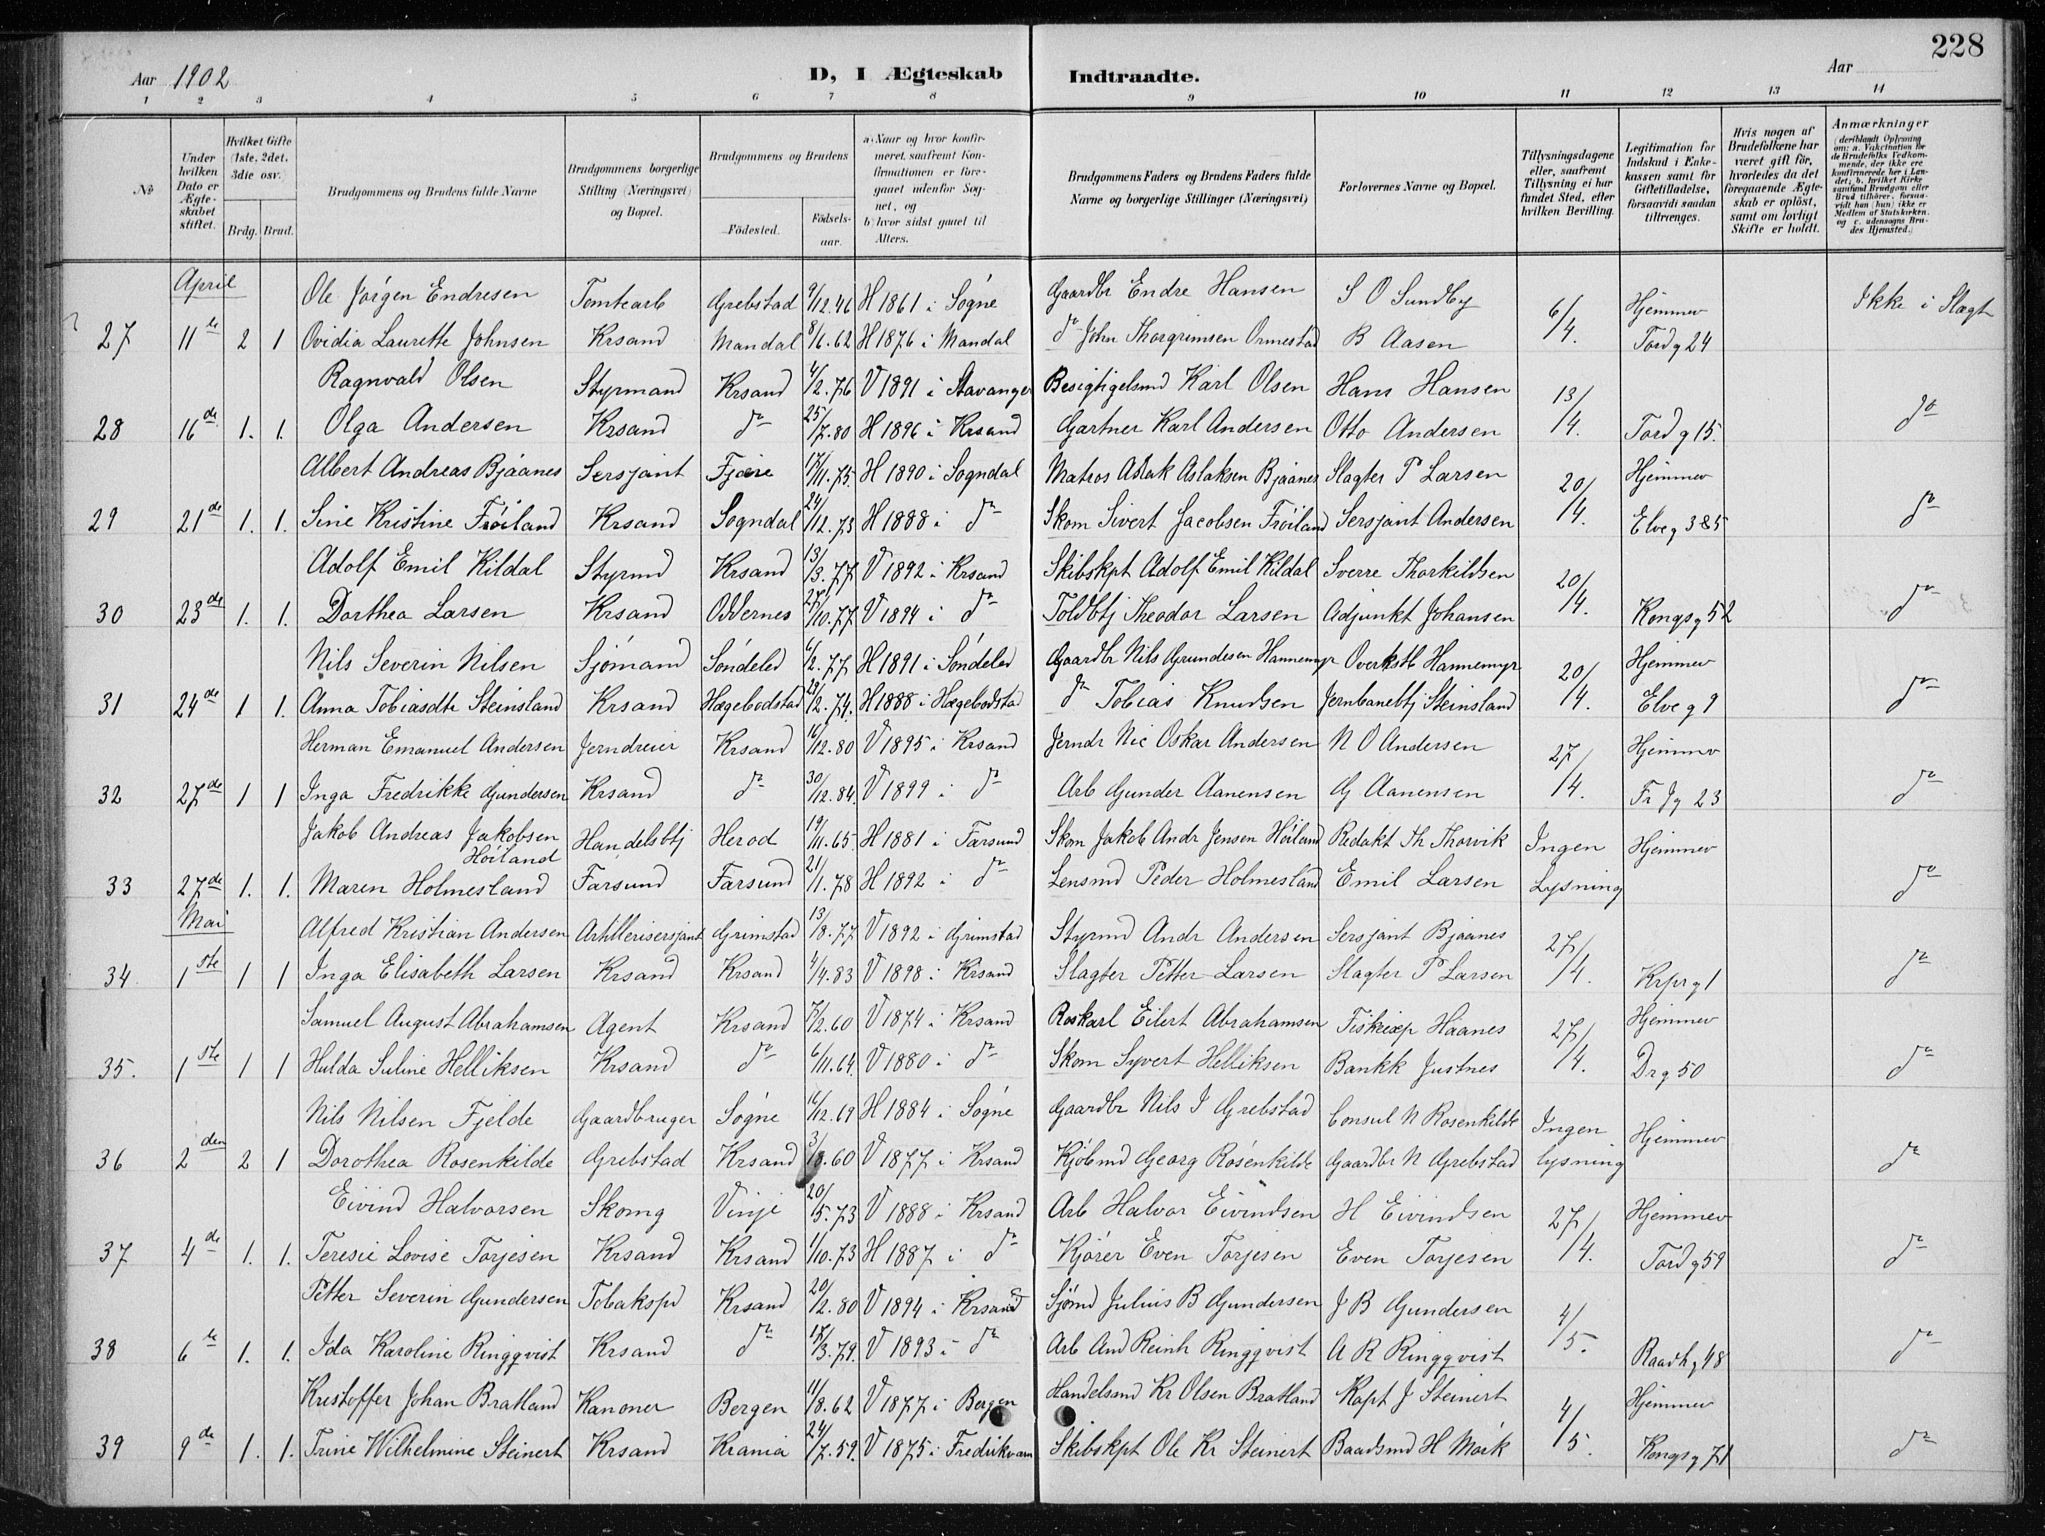 228
Aar 1902 D, I Ægteskab Indtraadte. Aar
1 2 3 4 5 6 7 8 9 10 11 12 13 14
No
Under hvilken Dato er Ægteskabet stiftet.
Hvilket Gifte (1ste, 2det, 3die osv.)
Brdg. Brud.
Brudgommens og Brudens fulde Navne
Brudgommens borgerlige Stilling (Næringsvei) og Bopæl.
Brudgommens og Brudens
Födested. Födselsaar.
a) Naar og hvor konfirmeret, saafremt Konfirmationen er foregaaet udenfor Sognet, og
b) hvor sidst gaaet til Alters.
Brudgommens Faders og Brudens Faders fulde Navne og borgerlige Stillinger (Næringsvei)
Forlovernes Navne og Bopæl.
Tillysningsdagene eller, saafremt Tillysning ei har fundet Sted, efter hvilken Bevilling.
Legitimation for Indskud i Enkekassen samt for Giftetilladelse, forsaavidt saadan tiltrænges.
Hvis nogen af Brudefolkene har været gift för, hvorledes da det foregaaende Ægteskab er oplöst, samt om lovligt Skifte er holdt.
Anmærkninger (deriblandt Oplysning om: a. Vakcination for de Brudefolks Vedkommende, der ikke ere konfirmerede her i Landet; b. hvilket Kirkesamfund Brudgom eller Brud tilhörer, forsaavidt han (hun) ikke er Medlem af Statskirken, og c. udensogns Brudes Hjemsted.)
April
Ole Jørgen Endresen Tomtearb Grebstad 9/12.46 H 1861 i Søgne Gaardbr Endre Hansen S O Sundby 6/4. Hjemmev Ikke i Slægt
27 11te 2 1 Ovidia Laurette Johnsen Krsand Mandal 8/6.62 H 1876 i Mandal do John Thorgrimsen Ormestad B Aasen Tordg 24
Ragnvald Olsen Styrmand Krsand 4/2.76 V 1891 i Stavanger Besigtigelsmd Karl Olsen Hans Hansen 13/4.
28 16de 1. 1. Olga Andersen Krsand do 25/7.80 H 1896 i Krsand Gartner Karl Andersen Otto Andersen Tordg 15. do
Albert Andreas Bjaanes Sersjant Fjære 17/11.75. H 1890 i Sogndal Matros Aslak Aslaksen Bjaanes Slagter P Larsen 20/4. Hjemmev
29 21de 1. 1. Sine Kristine Frøiland Krsand Sogndal 24/12.73 H 1888 i do Skom Sivert Jacobsen Frøiland Sersjant Andersen Elveg 385 do
Adolf Emil Kildal Styrmd Krsand 13/3.77 V 1892 i Krsand Skibskpt Adolf Emil Kildal Sverre Thorkildsen 20/4.
30 23de 1. 1. Dorthea Larsen Krsand Oddernes 27/10.77 V 1894 i do Toldbtj Theodor Larsen Adjunkt Johansen Kongsg 52 do
Nils Severin Nilsen Sjømand Søndeled 6/2.77 H 1891 i Søndeled Gaardbr Nils Gundesen Hannemyr Overkstb Hannemyr 20/4. Hjemmev
31 24de 1 1. Anna Tobiasdtr Steinsland Krsand Hægebodstad 29/2.74. H 1888 i Hægebodstad do Tobias Knudsen Jernbanebtj Steinsland Elveg 9 do
Herman Emanuel Andersen Jerndreier Krsand 16/12.80 V 1895 i Krsand Jerndr Nic Oskar Andersen N O Andersen 27/4. Hjemmev
32 27de 1 1 Inga Fredrikke Gundersen Krsand do 30/12.84. V 1899 i do Arb Gunder Aanensen G Aanensen Fr Jg 23 do
Jakob Andreas Jakobsen Høiland Handelsbtj Herod 19/11.65 H 1881 i Farsund Skom Jakob Andr Jensen Høiland Redakt Th Thorvik Ingen Hjemmev
33 27de 1. 1. Maren Holmesland Farsund Farsund 21/1.78 H 1892 i do Lensmd Peder Holmesland Emil Larsen Lysning do
Mai
Alfred Kristian Andersen Artillerisersjant Grimstad 13/8.77 V 1892 i Grimstad Styrmd Andr Andersen Sersjant Bjaanes 27/4.
34 1ste 1 1 Inga Elisabeth Larsen Krsand Krsand 4/4.83 V 1898 i Krsand Slagter Petter Larsen Slagter P Larsen Krprg 1 do
Samuel August Abrahamsen Agent Krsand 7/2.60 V 1874 i Krsand Roskarl Eilert Abrahamsen Fiskexp Haanes 27/4. Hjemmev
35. 1ste 1 1 Hulda Suline Helliksen Krsand do 6/11.64. V 1880 i do Skom Syvert Helliksen Bankk Justnes Drg 50 do
Nils Nilsen Fjelde Gaardbruger Søgne 16/12.69 H 1884 i Søgne Gaardbr Nils I Grebstad Consul N Rosenkilde Ingen Hjemmev
36 2den 2 1 Dorothea Rosenkilde Grebstad Krsand 3/8.60 V 1877 i Krsand Kjøbmd Georg Rosenkilde Gaardbr N Grebstad lysning do
Eivind Halvorsen Skomg Vinje 20/5.73 V 1888 i Krsand Arb Halvor Eivindsen H Eivindsen 27/4. Hjemmev
37 4de 1. 1. Teresie Lovise Torjesen Krsand Krsand 1/10.73 H 1887 i do Kjører Even Torjesen Even Torjesen Tordg 59 do
Petter Severin Gundersen Tobakspd Krsand 20/2.80 V 1894 i Krsand Sjømd Julius B Gundersen J B Gundersen 4/5.
38 6te 1. 1. Ida Karoline Ringqvist Krsand do 17/3.79. V 1893 i do Arb And Reinh Ringqvist A R Ringqvist Raadhg 48 do
Kristoffer Johan Bratland Kanoner Bergen 11/8.62 V 1877 i Bergen Handelsmd Kr Olsen Bratland Kapt J Steinert 4/5 Hjemmev
39 9de 1. 1. Trine Wilhelmine Steinert Krsand Krania 24/7.59. V 1875 i Fredriksværn Skibskpt Ole Kr Steinert Baadsmd H Mørk Kongsg 71 do